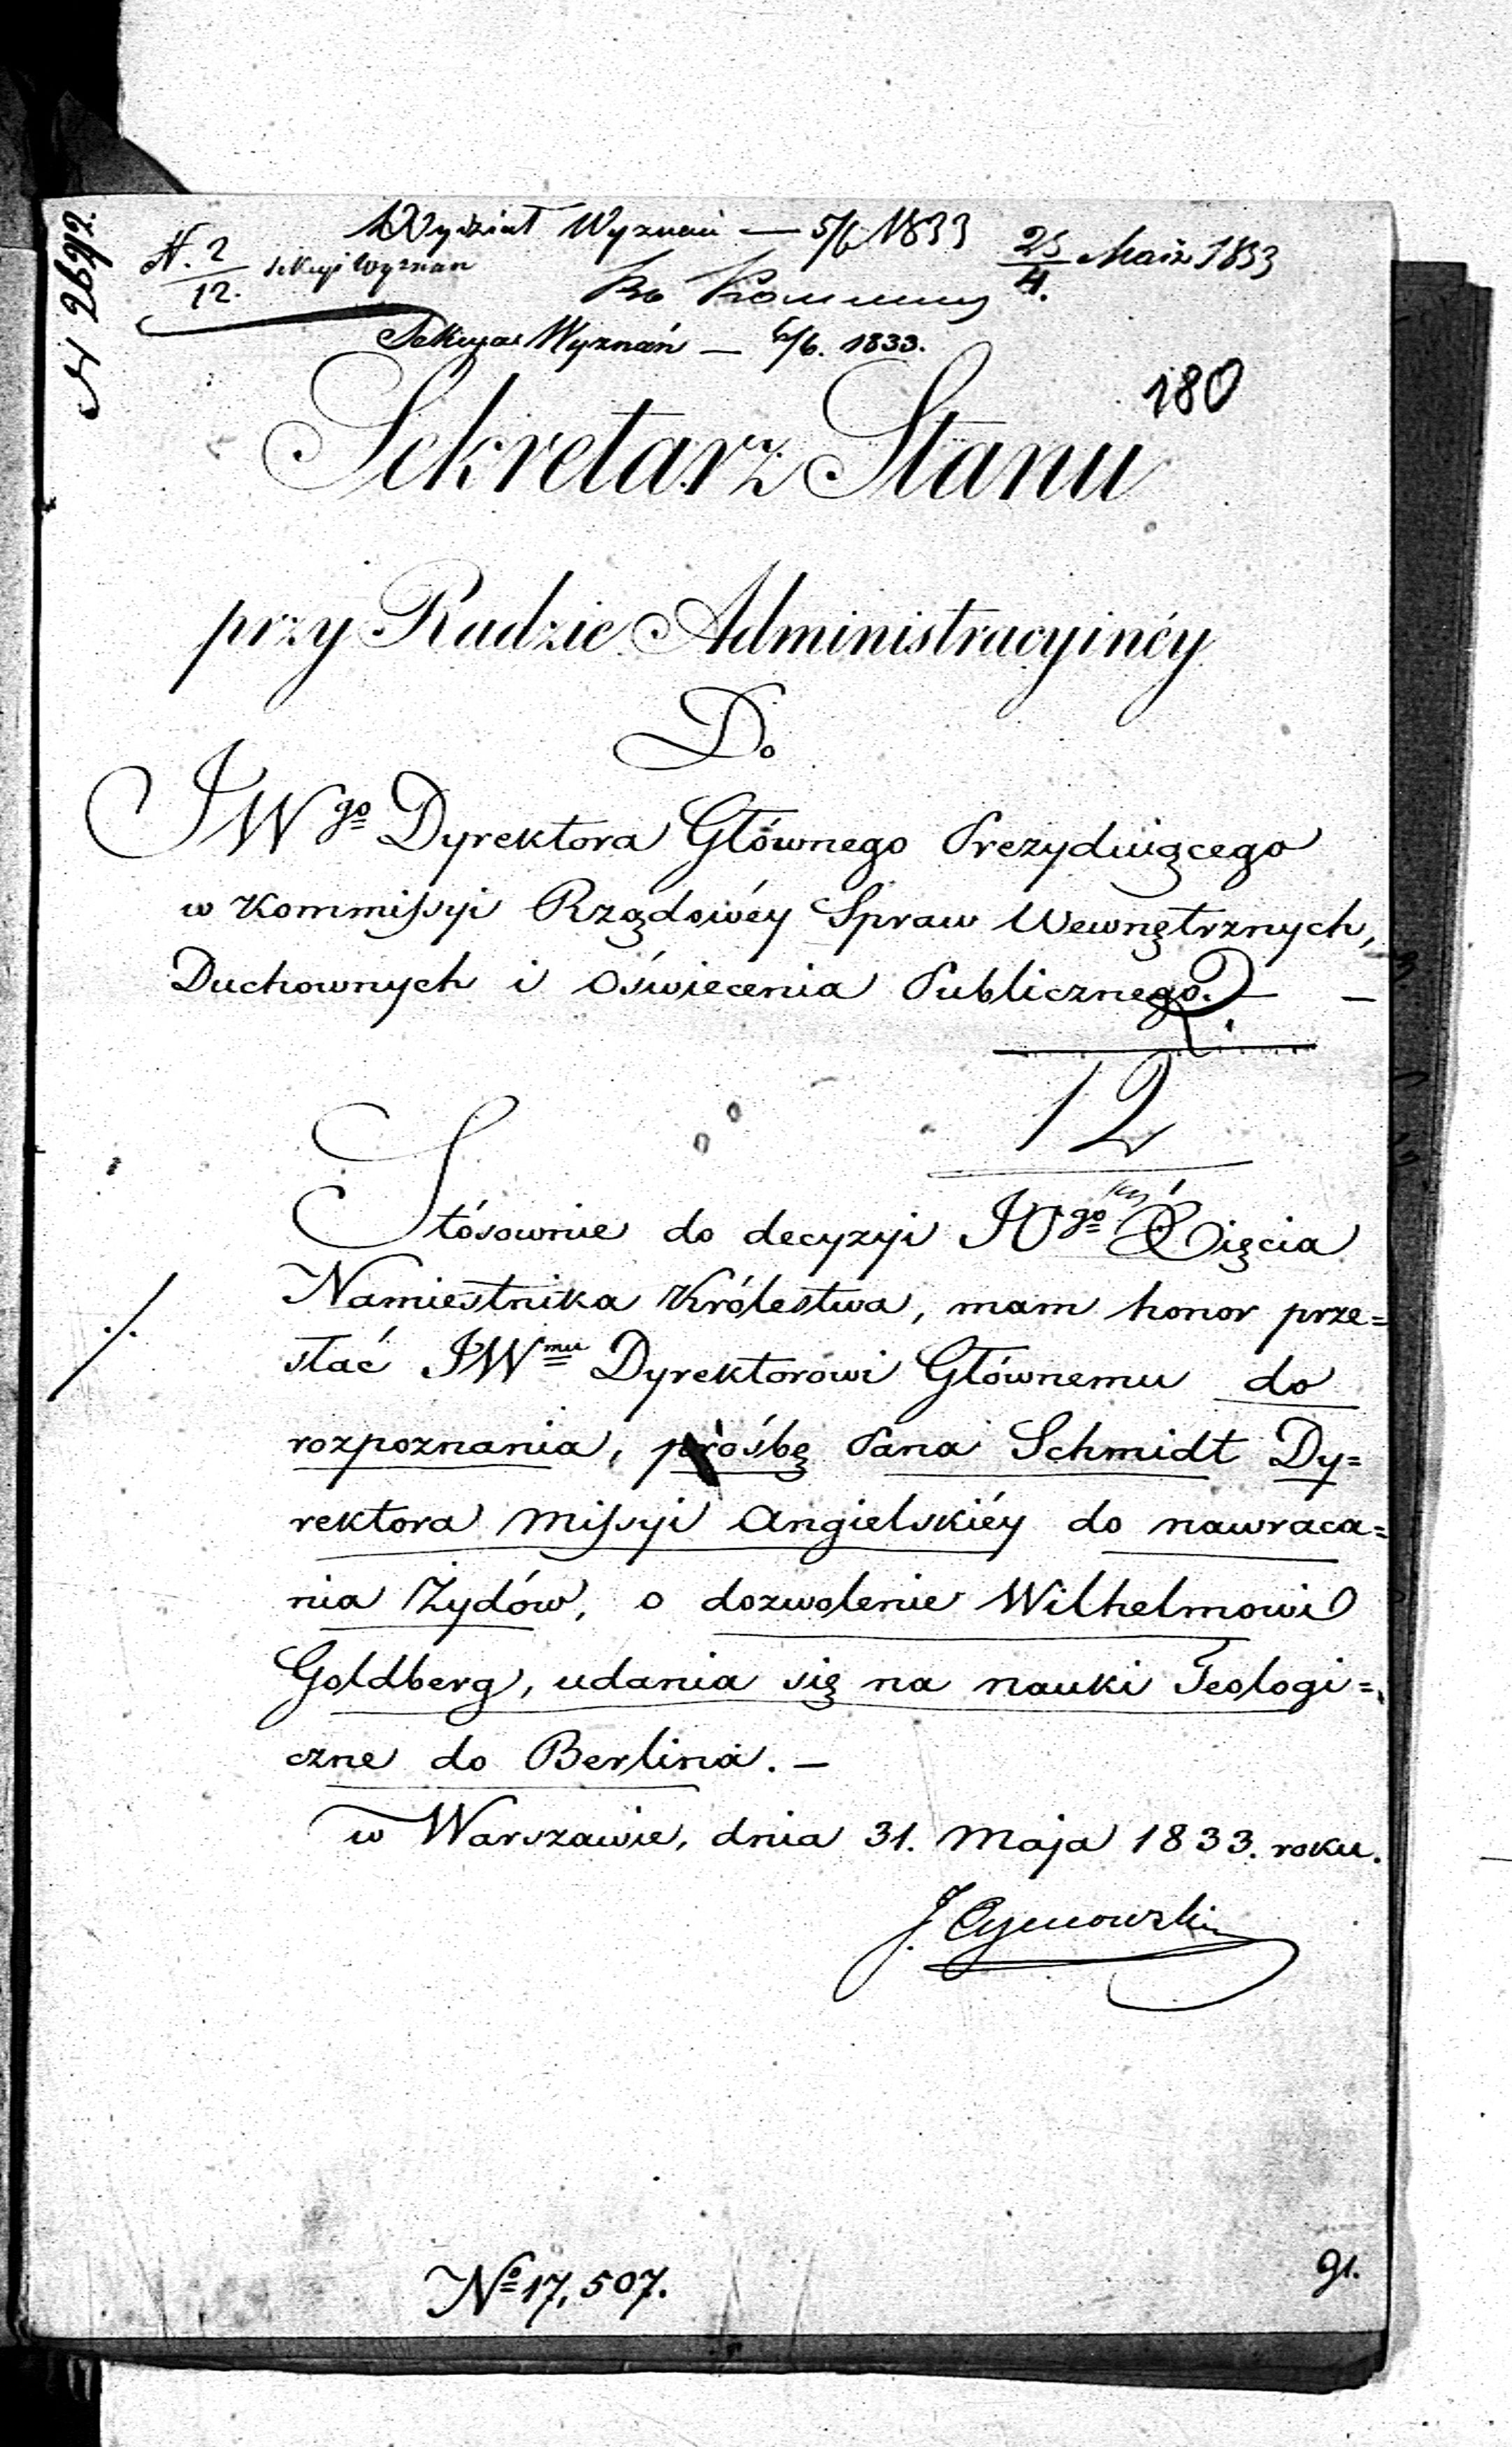 N 2692.
Wydział Wyznań — 5/6 1833
25/4. Maia 1833
N. 2/12. Sekcyi Wyznań
Sekcya Wyznań — 6/6. 1833.
180
Sekretarz Stanu
przy Radzie Administracyinéy
Do
JWgo Dyrektora Głównego Prezyduiącego
w Kommissyi Rządowéy Spraw Wewnętrznych,
Duchownych i Oświecenia Publicznego. — —
12
Stósownie do decyzyi JOgo Xięcia
Namiestnika Królestwa, mam honor prze=
słać JWmu Dyrektorowi Głównemu do
rozpoznania, prośbę Pana Schmidt Dy=
rektora Missyi Angielskiéy do nawraca=
nia Żydów, o dozwolenie Wilhelmowi
Goldberg, udania się na nauki Teologi=
czne do Berlina. —
w Warszawie, dnia 31. Maja 1833. roku.
№ 17,507.
91.